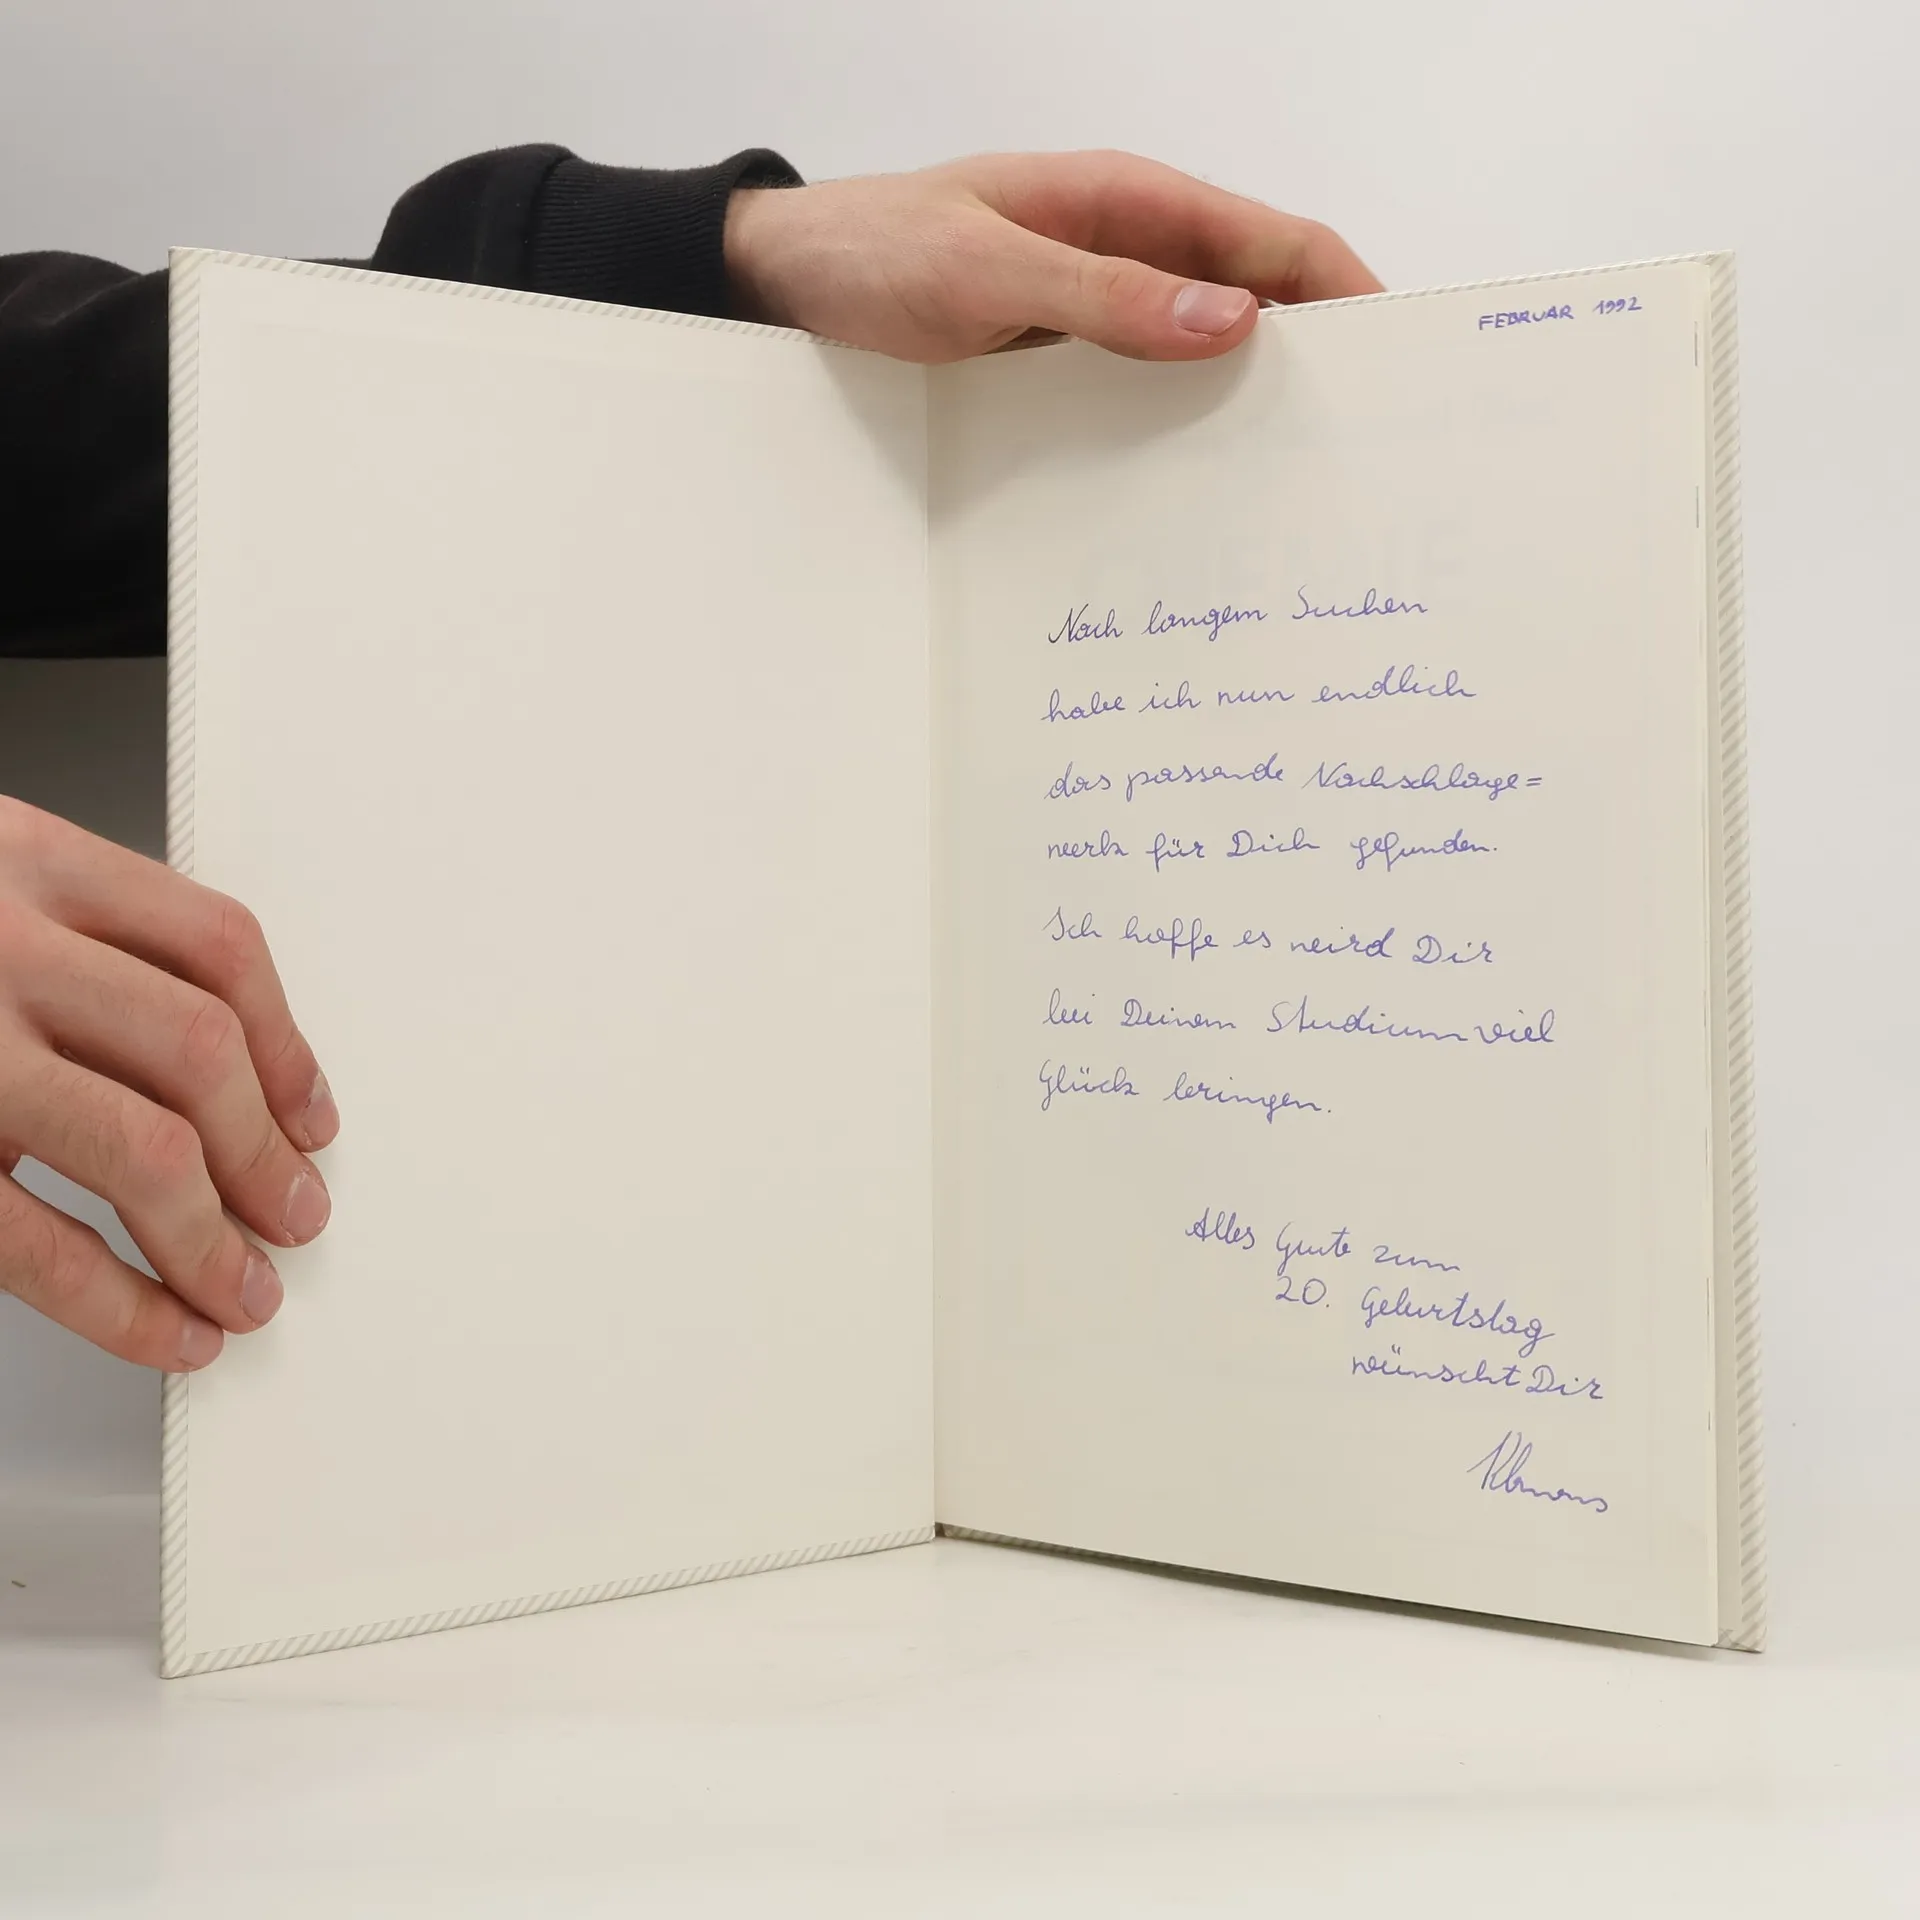 FEBRUAR 1992
Nach langem Suchen
habe ich nun endlich
das passende Nachschlage=
werk für Dich gefunden.
Ich hoffe es wird Dir
bei Deinem Studium viel
Glück bringen.
Alles Gute zum
20. Geburtstag
wünscht Dir